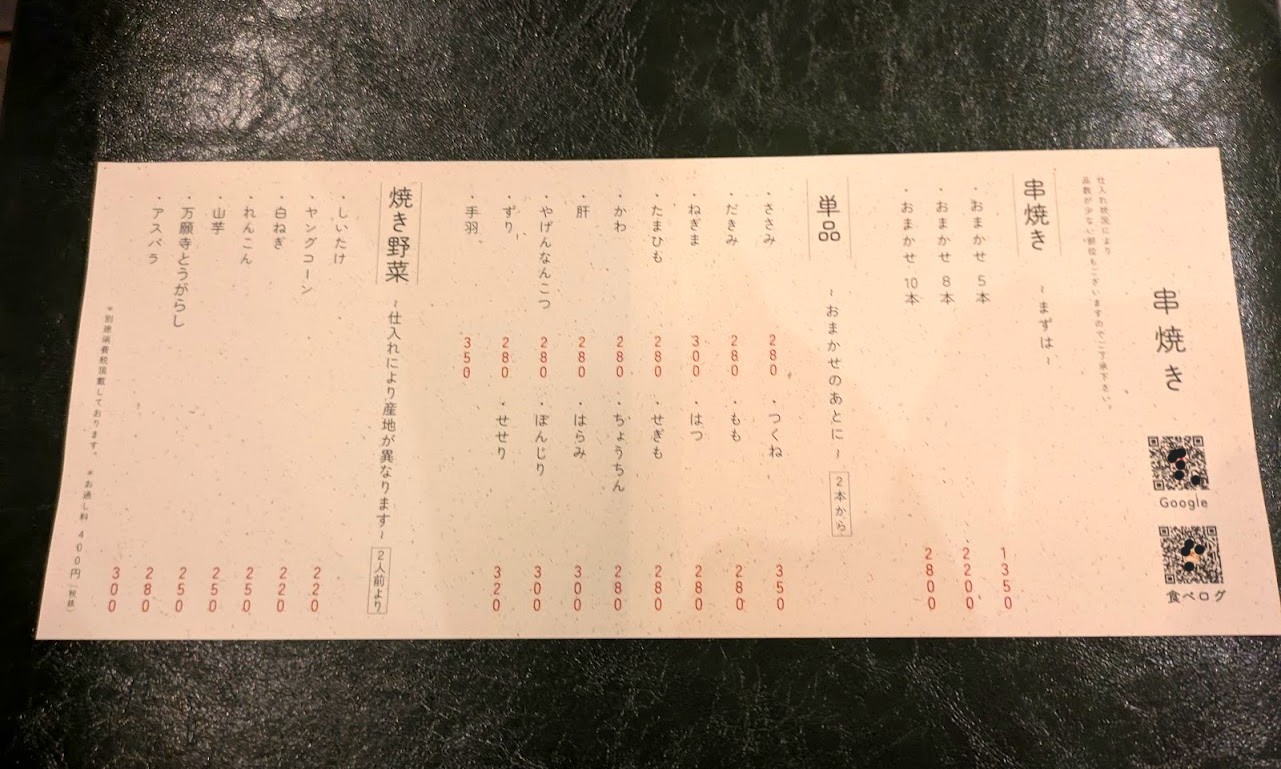 串焼き
Google
食べログ
仕入れ状況により
品数が少ない部位もございますのでご了承下さい。
串焼き ~まずは~
・おまかせ 5本 1350
・おまかせ 8本 2200
・おまかせ 10本 2800
単品 ~おまかせのあとに~ 2本から
・ささみ 280 ・つくね 350
・だきみ 280 ・もも 280
・ねぎま 300 ・はつ 280
・たまひも 280 ・せぎも 280
・かわ 280 ・ちょうちん 280
・肝 280 ・はらみ 300
・やげんなんこつ 280 ・ぼんじり 300
・ずり 280 ・せせり 320
・手羽 350
焼き野菜 ~仕入れにより産地が異なります~ 2人前より
・しいたけ 220
・ヤングコーン 220
・白ねぎ 250
・れんこん 250
・山芋 250
・万願寺とうがらし 280
・アスパラ 300
*別途消費税頂戴しております。 *お通し料 400円(税抜)